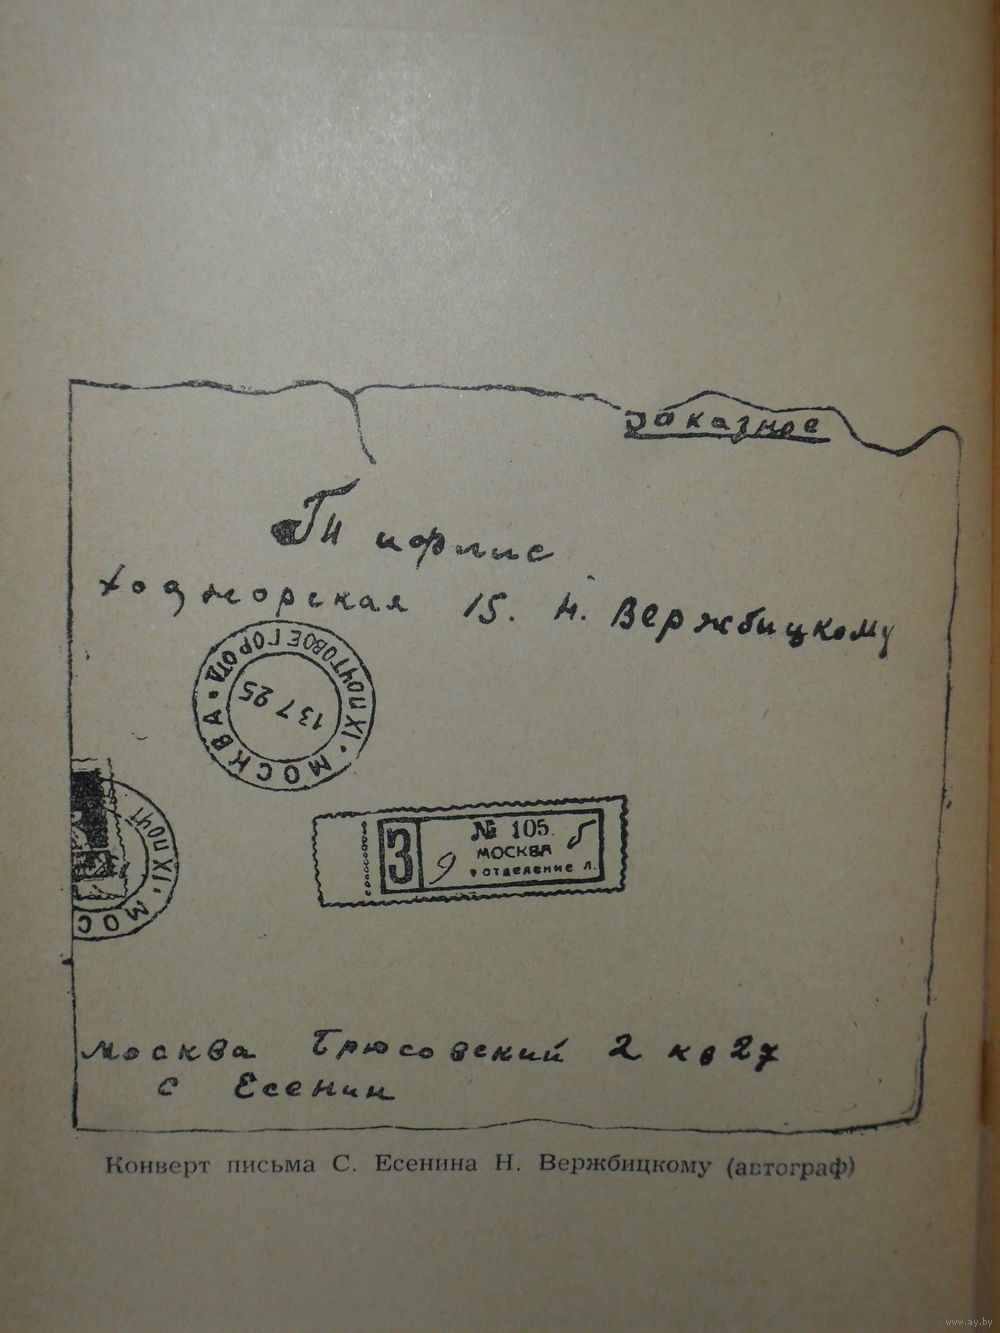 заказное
Тифлис
Ходжорская 15. Н. Вержбицкому
МОСКВА • ПОЧТОВОЕ ГОРОД
МОСКВА • XI ПОЧТ
13 7 25
З
№ 105.
МОСКВА
9 отделение л.
5
МОС
XI ПОЧТ
Москва Брюсовский 2 кв 27
С Есенин
Конверт письма С. Есенина Н. Вержбицкому (автограф)
www.ay.by